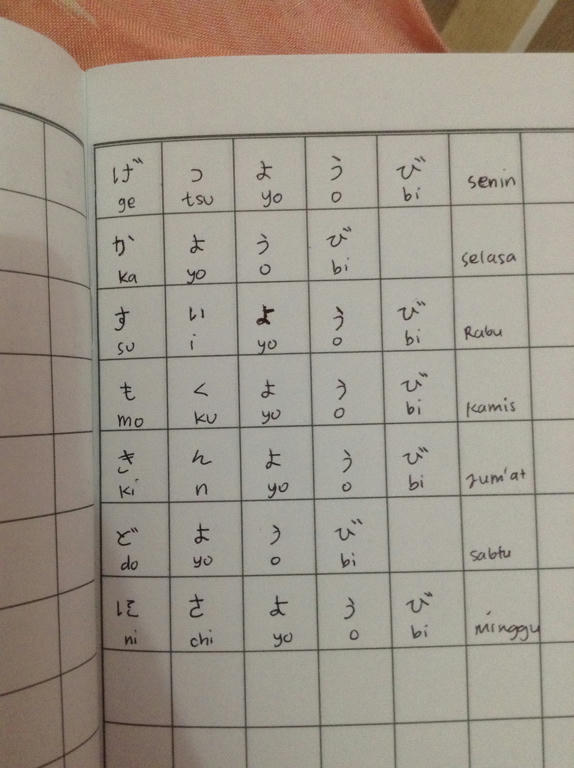 げ つ よ う び senin
ge tsu yo o bi
か よ う び selasa
ka yo o bi
す い よ う び Rabu
su i yo o bi
も く よ う び kamis
mo ku yo o bi
き ん よ う び jum'at
ki n yo o bi
ど よ う び sabtu
do yo o bi
に さ よ う び minggu
ni chi yo o bi